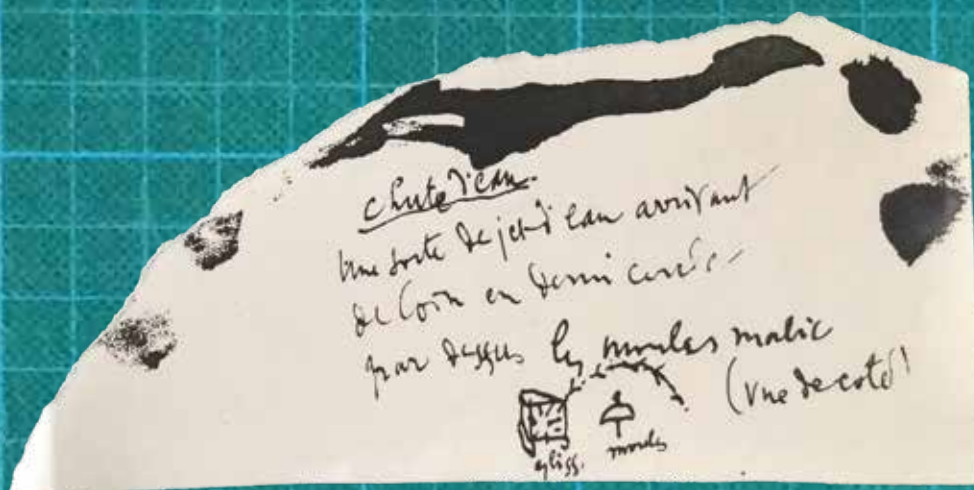 chute d'eau.
Une sorte de jet d'eau arrivant
de loin en demi cercle
par dessus les moules malic
(vue de coté)
gliss.
moules